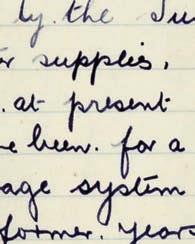 ly. the Su
r supplies.
. at present
e been. for a
age system
former. years